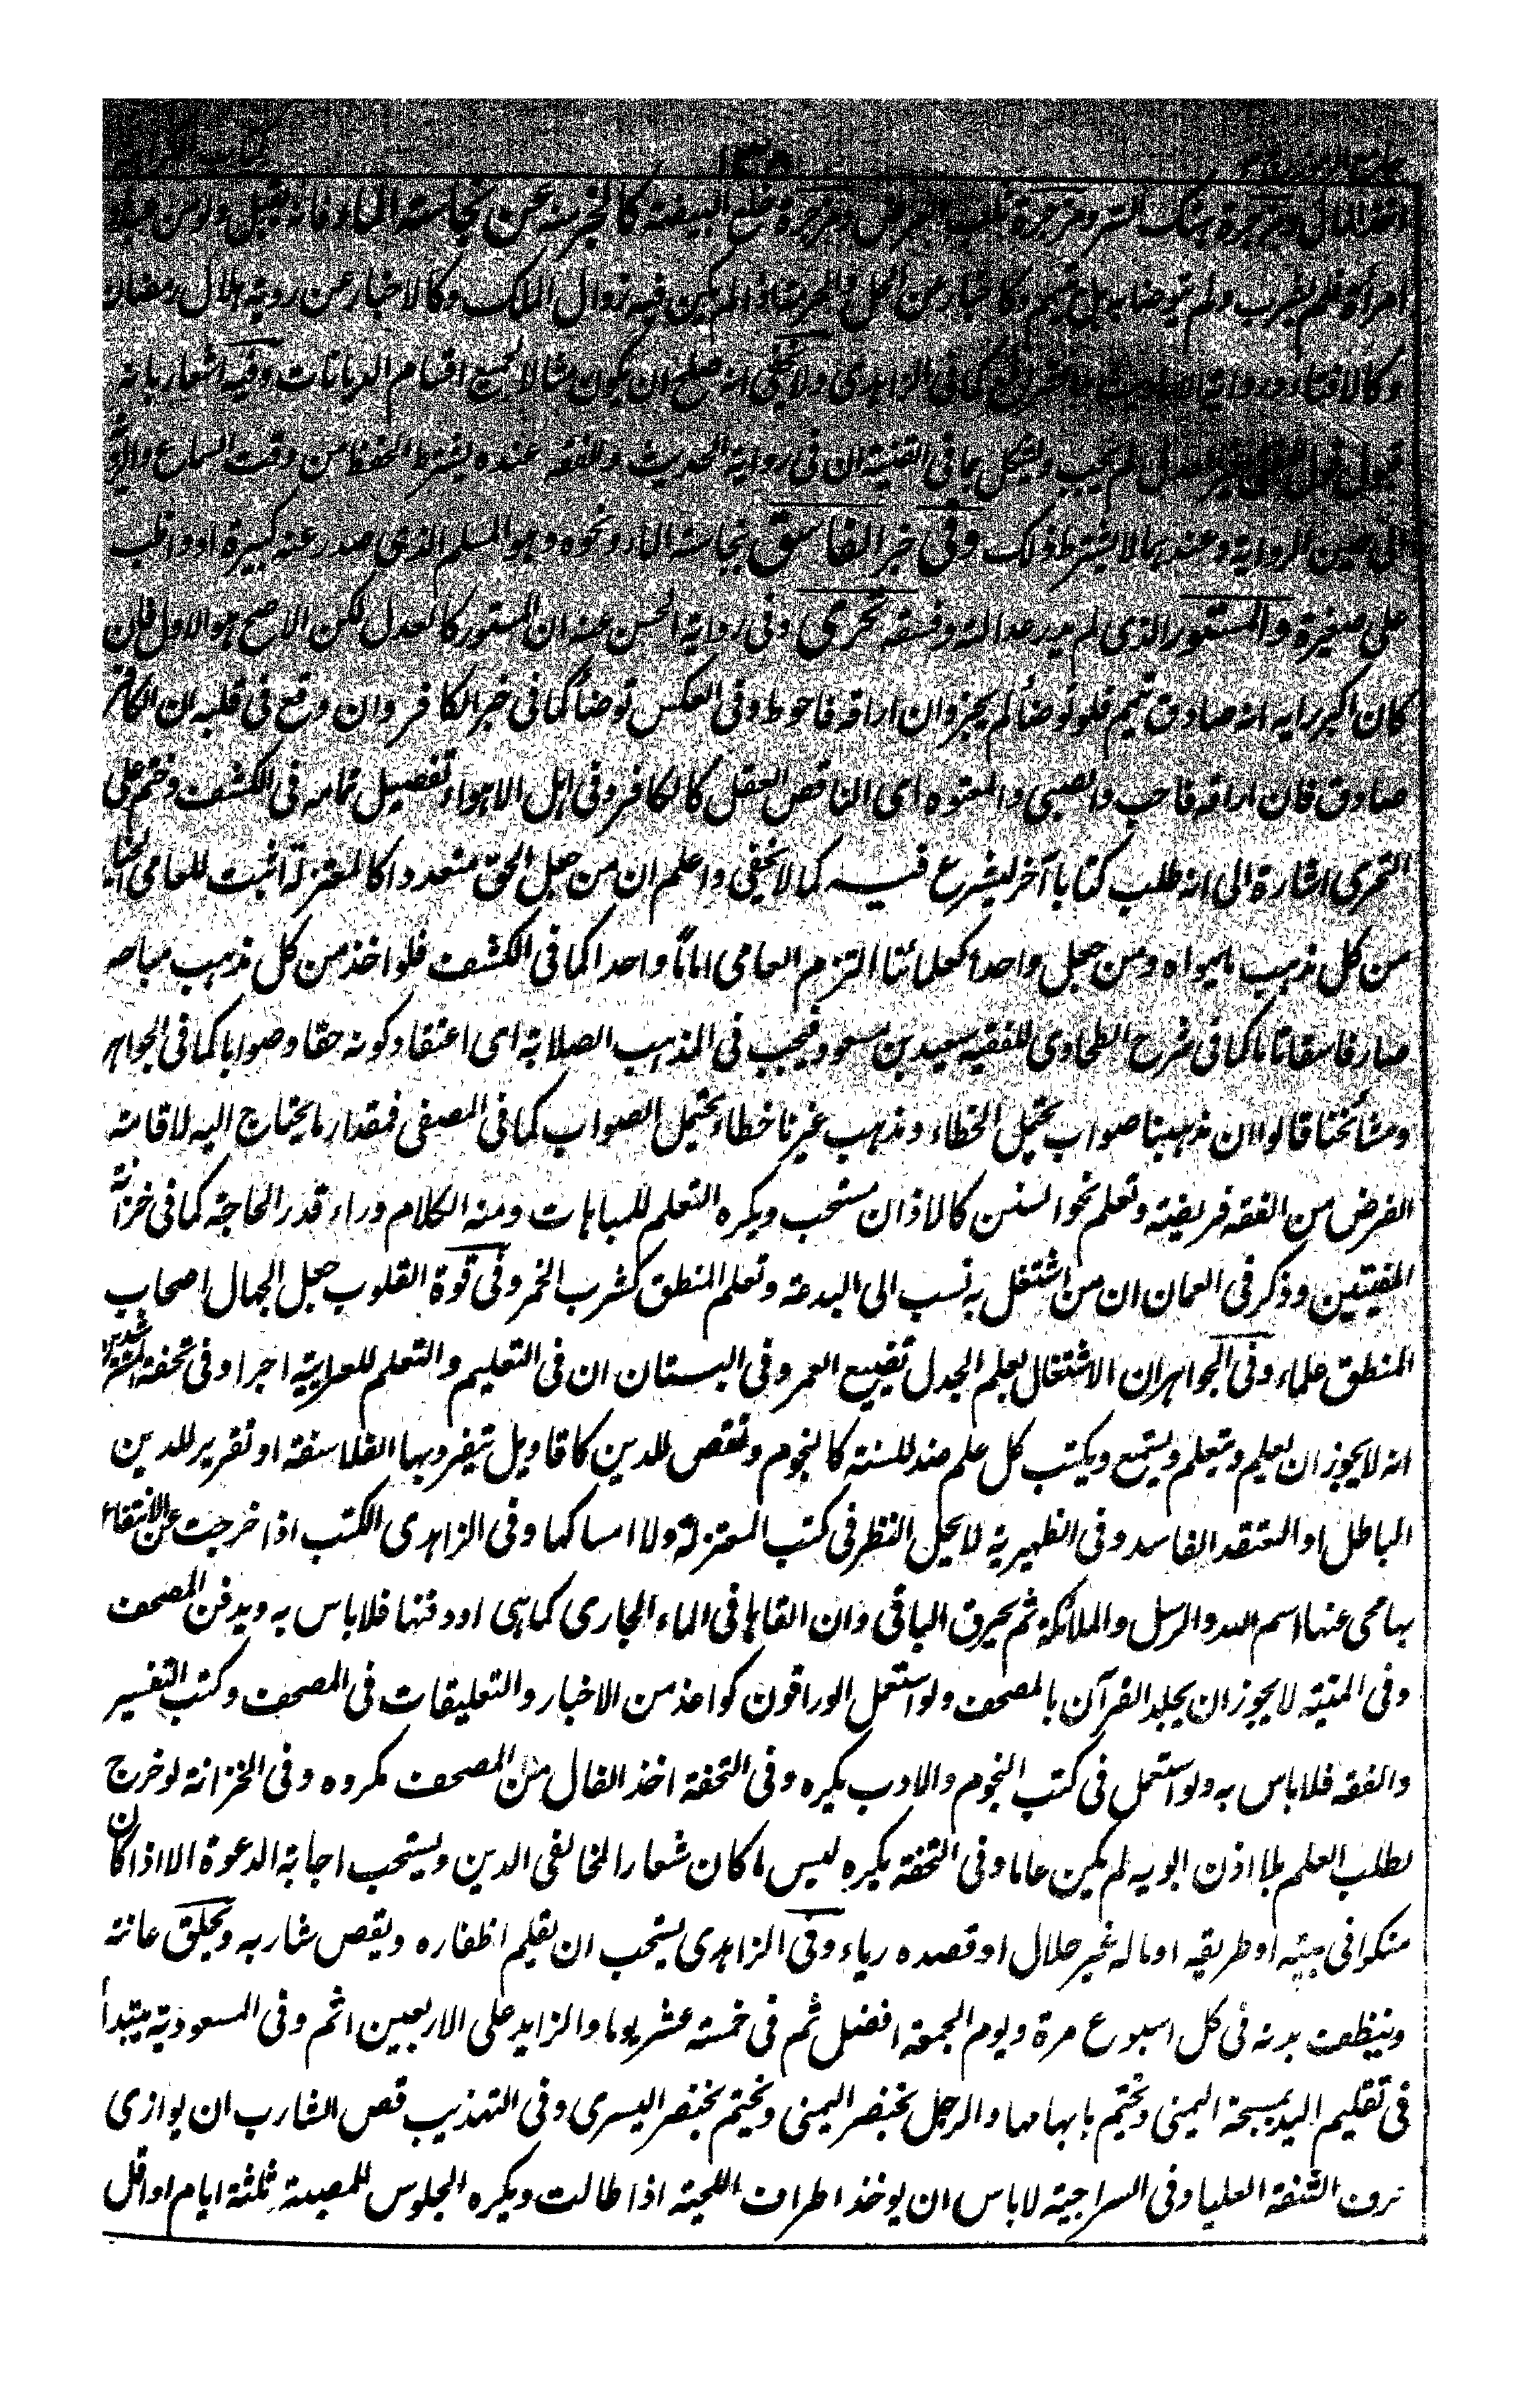 امرأة فلم يشرب ولم يتوضأ به بل تيمم وكاخبار عن الحل والحرمة اذا لم يكن فيه زوال الملك وكالاخبار عن روية هلال رمضان
وكالافتاء ورواية كما فى الزاهدى ولا يخفى انه صلح ان يكون مثالا لجميع اقسام الديانات وفيه اشعار بانه
قبول قول غير العدل لم يجب ويشكل بما فى القنية ان فى رواية الحديث والفقه عنده يشترط الحفظ من وقت السماع
الى حين الرواية وعندهما لا يشترط ذلك وفى خبر الفاسق بنجاسة الماء ونحوه وهو المسلم الذى صدر عنه كبيرة او واظب
على صغيرة والمستور الذى لم يدر عدالته وفسقه تحرى وفى رواية الحسن عنه ان المستور كالعدل لكن الاصح هو الاول فان
كان اكبر رايه انه صادق تيمم فلو توضأ لم يجز وان اراقه فاحوط وفى العكس توضأ كما فى خبر الكافر وان وقع فى قلبه ان الكافر
صادق فان اراقه فاحب والصبى والمعتوه اى الناقص العقل كالكافر وفى اهل الاهواء تفصيل تمامه فى الكشف وختم على
التحرى اشارة الى انه طلب كتابا آخر ليشرع فيه كما لا يخفى واعلم ان من جعل الحق متعددا كالمعتزلة اثبت للعامى الخيار
من كل مذهب ما يهواه ومن جعل واحدا كعلمائنا التزم العامى اماما واحدا كما فى الكشف فلو اخذ من كل مذهب مباحه
صار فاسقا تاما كما فى شرح الطحاوى للفقيه سعيد بن مسعود فيجب فى المذهب الصلابة اى اعتقاد كونه حقا وصوابا كما فى الجواهر
ومشائخنا قالوا ان مذهبنا صواب يحتمل الخطاء ومذهب غيرنا خطاء يحتمل الصواب كما فى المصفى فمقدار ما يحتاج اليه لاقامة
الفرض من الفقه فريضة وتعلم نحو السنن كالاذان مستحب ويكره التعلم للمباهات ومنه الكلام وراء قدر الحاجة كما فى خزانة
المفتيين وذكر فى العمان ان من اشتغل به نسب الى البدعة وتعلم المنطق كشرب الخمر وفى قوة القلوب جعل الجهال اصحاب
المنطق علماء وفى الجواهر ان الاشتغال بعلم الجدل تضييع العمر وفى البستان ان فى التعليم والتعلم للعربية اجرا وفى تحفة المسترشدين
انه لا يجوز ان يعلم ويتعلم ويستمع ويكتب كل علم ضد للسنة كالنجوم ونقص للدين كاقاويل يتفرد بها الفلاسفة او تقرير للدين
الباطل او المعتقد الفاسد وفى الظهيرية لا يحل النظر فى كتب المعتزلة ولا امساكها وفى الزاهدى الكتب اذا خرجت عن الانتفاع
بها محى عنها اسم الله والرسل والملائكة ثم يحرق الباقى وان القاها فى الماء الجارى كما هى او دفنها فلا باس به ويدفن المصحف
وفى المنية لا يجوز ان يجلد القرآن بالمصحف ولو استعمل الوراقون كواغذ من الاخبار والتعليقات فى المصحف وكتب التفسير
والفقه فلا باس به ولو استعمل فى كتب النجوم والادب يكره وفى التحفة اخذ الفال من المصحف مكروه وفى الخزانة لو خرج
لطلب العلم بلا اذن ابويه لم يكن عاصا وفى التحفة يكره لبس ما كان شعار المخالفى الدين ويستحب اجابة الدعوة الا اذا كان
منكرا فى بيته او طريقه او ماله غير حلال او قصده رياء وفى الزاهدى يستحب ان يقلم اظفاره ويقص شاربه ويحلق عانته
وينظف بدنه فى كل اسبوع مرة ويوم الجمعة افضل ثم فى خمسة عشر يوما والزايد على الاربعين اثم وفى المسعودية يبتدأ
فى تقليم اليد بمسبحة اليمنى ويختم بابهامها والرجل بخنصر اليمنى ويختم بخنصر اليسرى وفى التهذيب قص الشارب ان يوازى
حرف الشفة العليا وفى السراجية لا باس ان يوخذ اطراف اللحية اذا طالت ويكره الجلوس للمصيبة ثلثة ايام او اقل